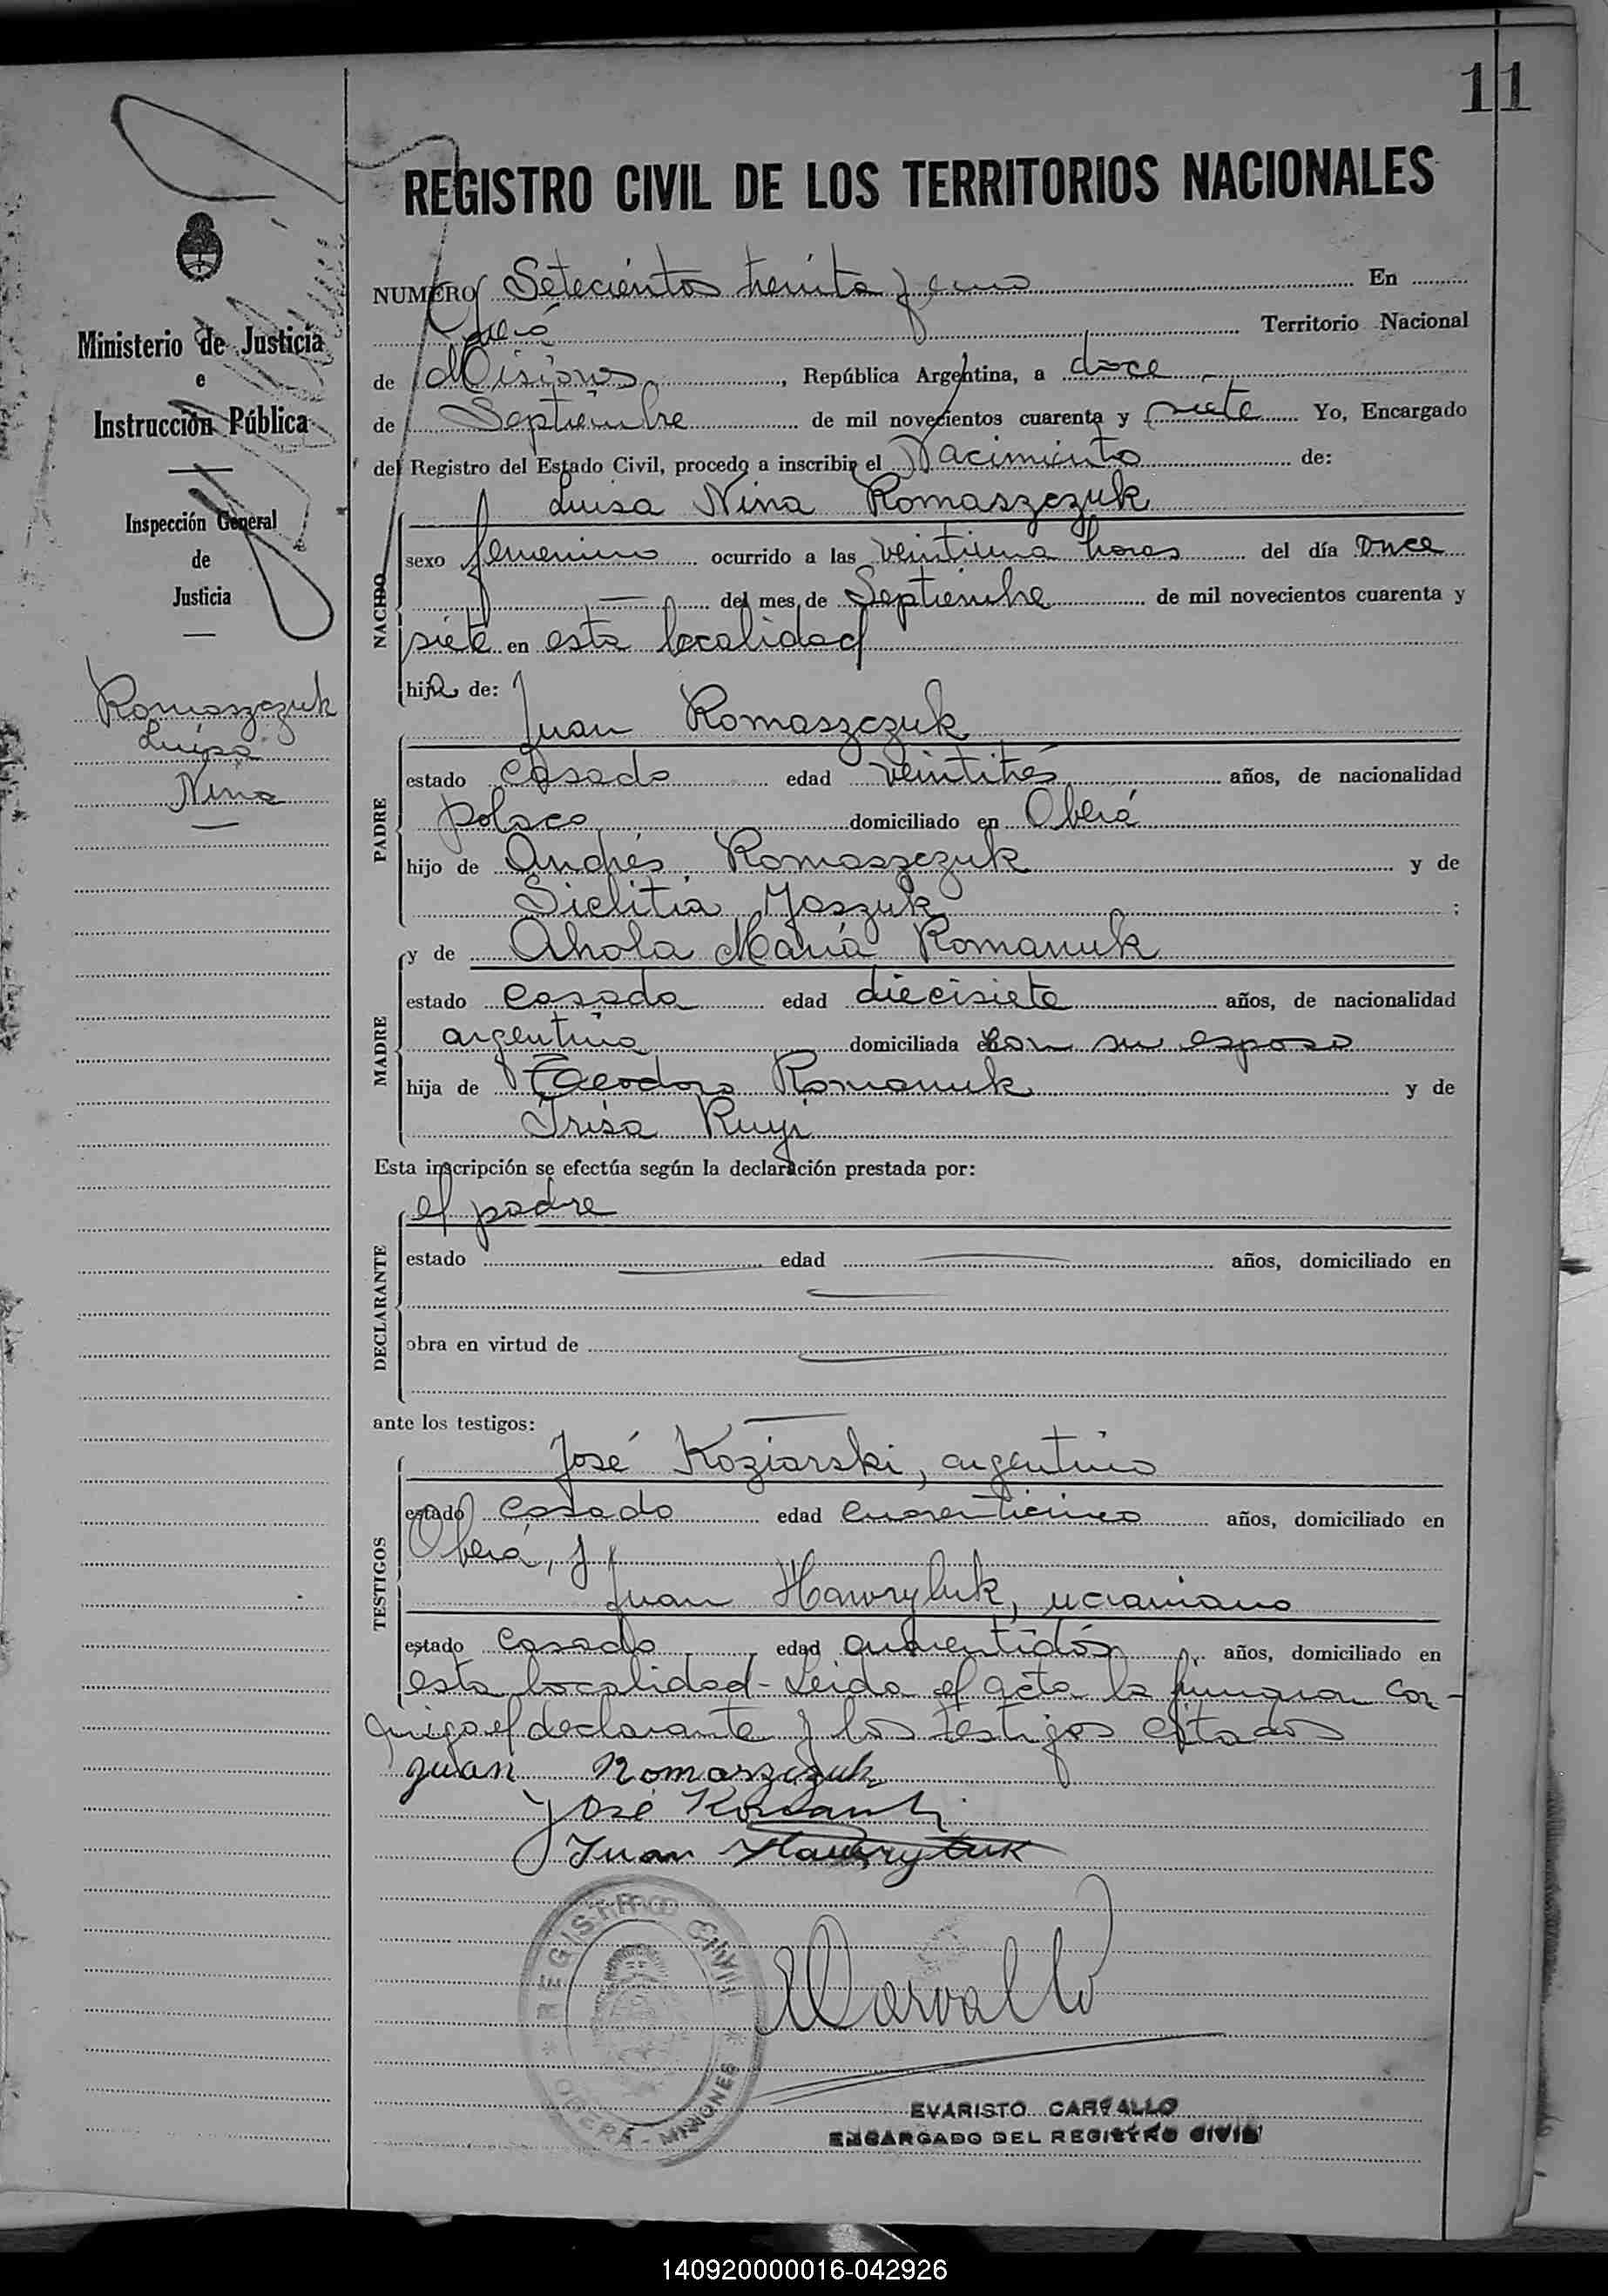 11
REGISTRO CIVIL DE LOS TERRITORIOS NACIONALES
NUMERO Setecientos treinta y uno En
Oberá Territorio Nacional
de Misiones, República Argentina, a doce
de Septiembre de mil novecientos cuarenta y siete Yo, Encargado
del Registro del Estado Civil, procedo a inscribir el Nacimiento de:
Luisa Nina Romaszczuk
NACIDO
sexo femenino ocurrido a las veintiuna horas del día once
del mes de Septiembre de mil novecientos cuarenta y
siete en esta localidad
hija de:
Juan Romaszczuk
PADRE
estado casado edad veintitrés años, de nacionalidad
polaco domiciliado en Oberá
hijo de Andrés Romaszczuk y de
Joszuk;
MADRE
y de María Romanuk
estado casada edad diecisiete años, de nacionalidad
argentina domiciliada en con su esposo
hija de Teodoro Romanuk y de
Irisa
Esta inscripción se efectúa según la declaración prestada por:
el padre
DECLARANTE
estado edad años, domiciliado en
obra en virtud de
ante los testigos:
TESTIGOS
José Koziarski, argentino
estado casado edad cuarenticinco años, domiciliado en
Oberá, y
Juan Hawryluk, ucraniano
estado casado edad cuarentidós años, domiciliado en
esta localidad - Leida el acta la firmaron con-
migo el declarante y los testigos citados
Juan Romaszczuk
José
Juan Hawryluk
ECarvallo
REGISTRO CIVIL
OBERA - MISIONES
EVARISTO CARVALLO
ENCARGADO DEL REGISTRO CIVIL
Ministerio de Justicia
e
Instrucción Pública
Inspección General
de
Justicia
Romaszczuk
Luisa
Nina
140920000016-042926